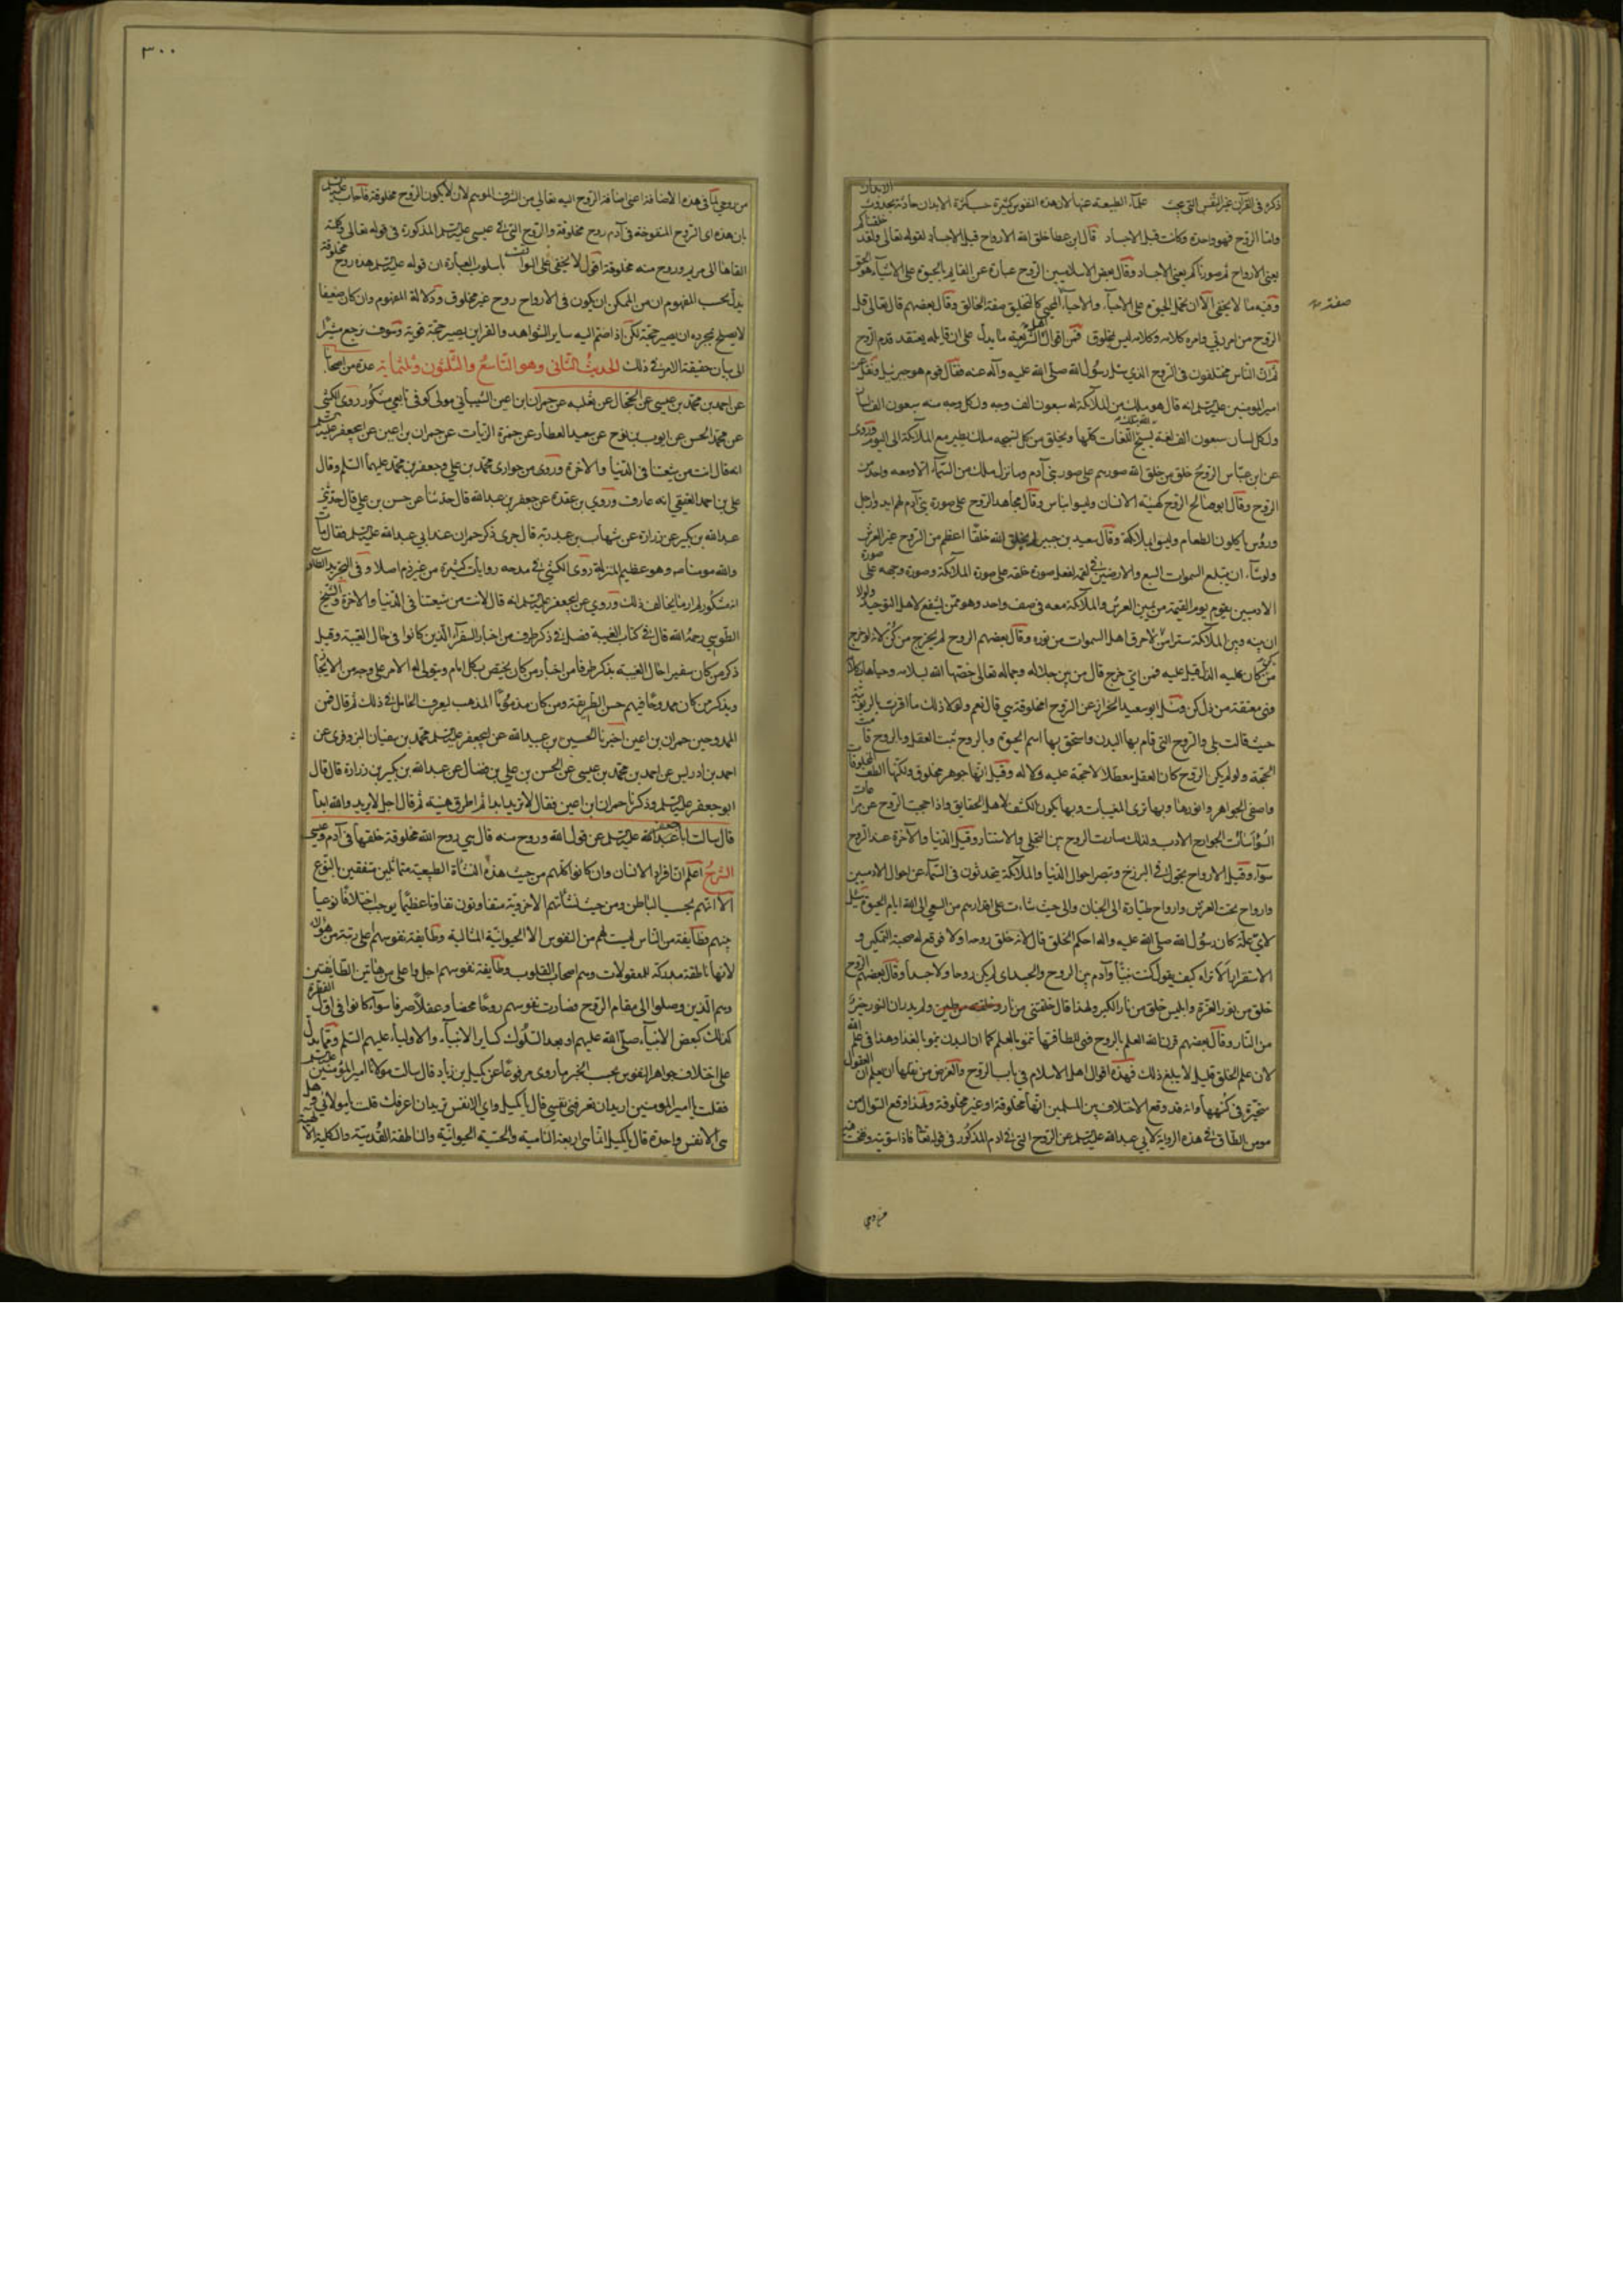 ذكره فى القرآن غير النفس التى يبحث علماء الطبيعة عنها لان هذه النفوس كثيرة حسب كثرة الابدان حادثة بحدوث الابدان
واما الروح فهو واحدة وكانت قبل الاجساد قال ابن عطا خلق الله الارواح قبل الاجساد لقوله تعالى ولقد خلقناكم
يعنى الارواح ثم صورناكم يعنى الاجساد وقال بعض الاسلاميين الروح عبارة عن القايم بالحيوة على الاشياء هو الحق
وفيه ما لا يخفى الا ان يحمل الحيوة على الاحياء والاحياء المحيى كالتخليق صفة الخالق وقال بعضهم قال تعالى قل
صفته
الروح من امر ربى وامره كلامه وكلامه ليس بمخلوق فمن اقوال اهل الشريعة ما يدل على ان قايله يعتقد قدم الروح
ثم ان الناس مختلفون فى الروح الذى سئل رسول الله صلى الله عليه وآله عنه فقال قوم هو جبرئيل ونقل عن
امير المومنين عليه السلم انه قال هو ملك من الملائكة له سبعون الف وجه ولكل وجه منه سبعون الف لسان
ولكل لسان سبعون الف لغة يسبح الله تلك اللغات كلها ويخلق من كل تسبيحه ملك يطير مع الملائكة الى اليوم وروى
عن ابن عباس الروح خلق من خلق الله صورهم على صور بنى آدم وما نزل ملك من السماء الا ومعه واحد من
الروح وقال ابو صالح الروح كهيئة الانسان وليسوا بناس وقال مجاهد الروح على صورة بنى آدم لهم ايد وارجل
ورؤس ياكلون الطعام وليسوا بملائكة وقال سعيد بن جبير لم يخلق الله خلقا اعظم من الروح غير العرش
ولو شاء ان يبتلع السموات السبع والارضين فى لقمة لفعل صورة خلقه على صورة الملائكة وصورة وجهه على صورة
الادميين يقوم يوم القيمة من يمين العرش والملائكة معه فى صف واحد وهو ممن يشفع لاهل التوحيد ولولا
ان بينه وبين الملائكة سترا من نور لاحرق اهل السموات من نوره وقال بعضهم الروح لم يخرج من كن لانه لو خرج
من كن كان عليه الذل قيل عليه فمن اى خرج قال من بين جلاله وجماله تعالى خصها الله بسلامه وحياها بكلامه
فهى معتقة من ذل كن وسئل ابو سعيد الخراز عن الروح امخلوقة هى قال نعم ولولا ذلك ما اقرت بالربوبية
حيث قالت بلى والروح التى قام بها البدن واستحق بها اسم الحيوة وبالروح ثبت العقل وبالروح قامت
الحجة ولو لم يكن الروح كان العقل معطلا لا حجة عليه ولا له وقيل انها جوهر مخلوق ولكنها الطف المخلوقات
واصفى الجواهر وانورها وبها ترى المغيبات وبها يكون الكشف لاهل الحقايق واذا حجبت الروح عن مراعات
السر اساءت الجوارح الادب ولذلك صارت الروح بين التجلى والاستتار وقيل الدنيا والآخرة عند الروح
سواء وقيل الارواح يجول فى البرزخ وتبصر احوال الدنيا والملائكة يتحدثون فى السماء عن احوال الادميين
وارواح تحت العرش وارواح طيارة الى الجنان والى حيث شاءت على اقدارهم من السعى الى الله ايام الحيوة سئل
لاى علة كان رسول الله صلى الله عليه واله احكم الخلق قال لانه خلق روحه اولا فوقع له صحبة التمكين و
الاستقرار الا تراه كيف يقول كنت نبيا وآدم بين الروح والجسد اى لم يكن روحا ولا جسدا وقال بعضهم الروح
خلق من نور العزة وابليس خلق من نار الكبر ولهذا قال خلقتنى من نار وخلقته من طين ولم يدر ان النور خير
من النار وقال بعضهم قرن الله العلم بالروح فهى للطافتها تنمو بالعلم كما ان البدن ينمو بالغذا وهذا فى علم الله
لان علم الخلق قليل لا يبلغ ذلك فهذه اقوال اهل الاسلام فى باب الروح والغرض من نقلها ان يعلم ان العقول
متحيرة فى كنهها وانه قد وقع الاختلاف بين المسلمين انها مخلوقة او غير مخلوقة ولهذا وقع السوال من
مومن الطاق فى هذه الرواية لابى عبد الله عليه السلم عن الروح التى فى ادم المذكور فى قوله تعالى فاذا سويته ونفخت فيه
من روحى
٣٠٠
من روحى لما فى هذه الاضافة اعنى اضافة الروح اليه تعالى من الشرف الموهم لان لا يكون الروح مخلوقة فاجاب عليه السلم
بان هذه اى الروح المنفوخة فى آدم روح مخلوقة والروح التى فى عيسى عليه السلم المذكورة فى قوله تعالى وكلمته
القاها الى مريم وروح منه مخلوقة اقول لا يخفى على الواقف باسلوب العبارة ان قوله عليه السلم هذه روح مخلوقة
يدل بحسب المفهوم ان من الممكن ان يكون فى الارواح روح غير مخلوق ودلالة المفهوم وان كان ضعيفا
لا يصلح بمجرده ان يصير حجة لكن اذا ضم اليه ساير الشواهد والقراين يصير حجة قوية وسوف نرجع مشيرا
الى بيان حقيقة الامر فى ذلك الحديث الثانى وهو التاسع والثلثون وثلثمأية عدة من اصحابنا
عن احمد بن محمد بن عيسى عن الحجال عن ثعلبه عن حمران بن اعين الشيبانى مولى كوفى تابعى مشكور روى الكشى
عن محمد الحسن عن ايوب بن نوح عن سعيد العطار عن حمزة الزيات عن حمران بن اعين عن ابى جعفر عليه السلم
انه قال انت من شيعتنا فى الدنيا والاخرة وروى من حوارى محمد بن على وجعفر بن محمد عليهما السلم وقال
على بن احمد العقيقى انه عارف وروى بن عقدة عن جعفر بن عبد الله قال حدثنا عن حسن بن على قال حدثنى
عبد الله بن بكير عن زرارة عن شهاب بن عبد ربه قال جرى ذكر حمران عند ابى عبد الله عليه السلم فقال مات
والله مومنا وهو عظيم المنزلة روى الكشى فى مدحه روايات كثيرة من غير ذم اصلا وفى التحرير الطاوسى
انه مشكور لم ار ما يخالف ذلك وروى عن ابى جعفر عليه السلم انه قال لانت من شيعتنا فى الدنيا والاخرة والشيخ
الطوسى رحمه الله قال فى كتاب الغيبة فصل فى ذكر طرف من اخبار السفراء الذين كانوا فى حال الغيبة وقبل
ذكر من كان سفيرا حال الغيبة يذكر طرفا من اخبار من كان يختص بكل امام ويتولى له الامر على وجه من الايجاز
ويذكر من كان ممدوحا فيهم حسن الطريقة ومن كان مذموما المذهب ليعرف الحال فى ذلك ثم قال فمن
الممدوحين حمران بن اعين اخبرنا الحسين بن عبيد الله عن ابى جعفر عليه السلم محمد بن سفيان البزوفرى عن
احمد بن ادريس عن احمد بن محمد بن عيسى عن الحسن بن على بن فضال عن عبد الله بن بكير بن زرارة قال قال
ابو جعفر عليه السلم وذكرنا حمران بن اعين فقال لا يرتد ابدا ثم اطرق هنيئة ثم قال اجل لا يرتد والله ابدا
قال سالت ابا عبد الله عليه السلم عن قول الله وروح منه قال هى روح الله مخلوقة خلقها فى آدم وعيسى
الشرح اعلم ان افراد الانسان وان كانوا كلهم من حيث هذه النشأة الطبيعية متماثلين متفقين بالنوع
الا انهم بحسب الباطن ومن حيث نشأتهم الاخروية متفاوتون تفاوتا عظيما يوجب اختلافا نوعيا
بينهم فطايفة من الناس ليست لهم من النفوس الا الحيوانية المثالية وطايفة نفوسهم اعلى رتبة من هؤلاء
لانها ناطقة مدركة للمعقولات وهم اصحاب القلوب وطايفة نفوسهم اجل واعلى من هاتين الطايفتين
وهم الذين وصلوا الى مقام الروح فصارت نفوسهم روحا محضا وعقلا صرفا سواء كانوا فى اول الفطرة
كذلك كبعض الانبياء صلى الله عليهم او بعد السلوك كساير الانبياء والاولياء عليهم السلم ومما يدل
على اختلاف جواهر النفوس بحسب الخبر ما روى مرفوعا عن كميل بن زياد قال سالت مولانا امير المؤمنين عليه السلم
فقلت يا امير المومنين اريد ان تعرفنى نفسى قال يا كميل واى الانفس تريد ان اعرفك قلت يا مولائى وهل
هى الا نفس واحدة قال يا كميل انما هى اربعة النامية والحسية الحيوانية والناطقة القدسية والكلية الالهية